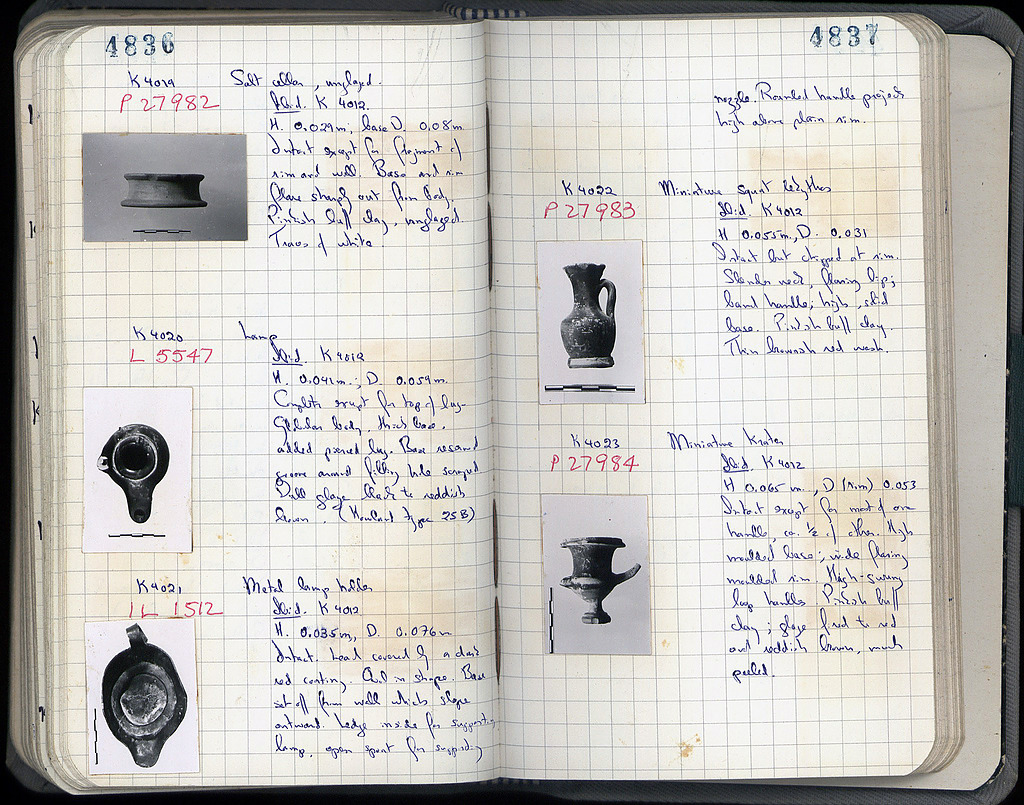 4836
K 4019
P 27982
Salt cellar, unglazed.
Ibid. K 4012.
H. 0.029m; base D. 0.08m
Intact except for fragment of
rim and wall. Base and rim
flare sharply out from body.
Pinkish buff clay, unglazed.
Traces of white
K 4020
L 5547
Lamp
Ibid. K 4012
H. 0.041m.; D. 0.059m.
Complete except for top of lug.
Globular body, thick base,
added pierced lug. Base reserved
groove around filling hole scraped
Dull glaze black to reddish
brown. (Howland type 25B)
K 4021
IL 1512
Metal lamp holder
Ibid. K 4012
H. 0.035m, D. 0.076m
Intact. Lead covered by a dark
red coating. Oval in shape. Base
set off from wall which slope
outward. Ledge inside for supporting
lamp, open spout for supporting
4837
nozzle. Rounded handle projects
high above plain rim.
K 4022
P 27983
Miniature squat lekythos
Ibid. K 4012
H 0.055m., D. 0.031
Intact but chipped at rim.
Slender neck, flaring lip;
band handle; high, solid
base. Pinkish buff clay.
Thin brownish red wash.
K 4023
P 27984
Miniature krater
Ibid. K 4012
H 0.065 m., D (rim) 0.053
Intact except for most of one
handle, ca. 1/2 of other. High
moulded base; wide flaring
moulded rim. High-swung
loop handles. Pinkish buff
clay; glaze fired to red
and reddish brown, much
peeled.